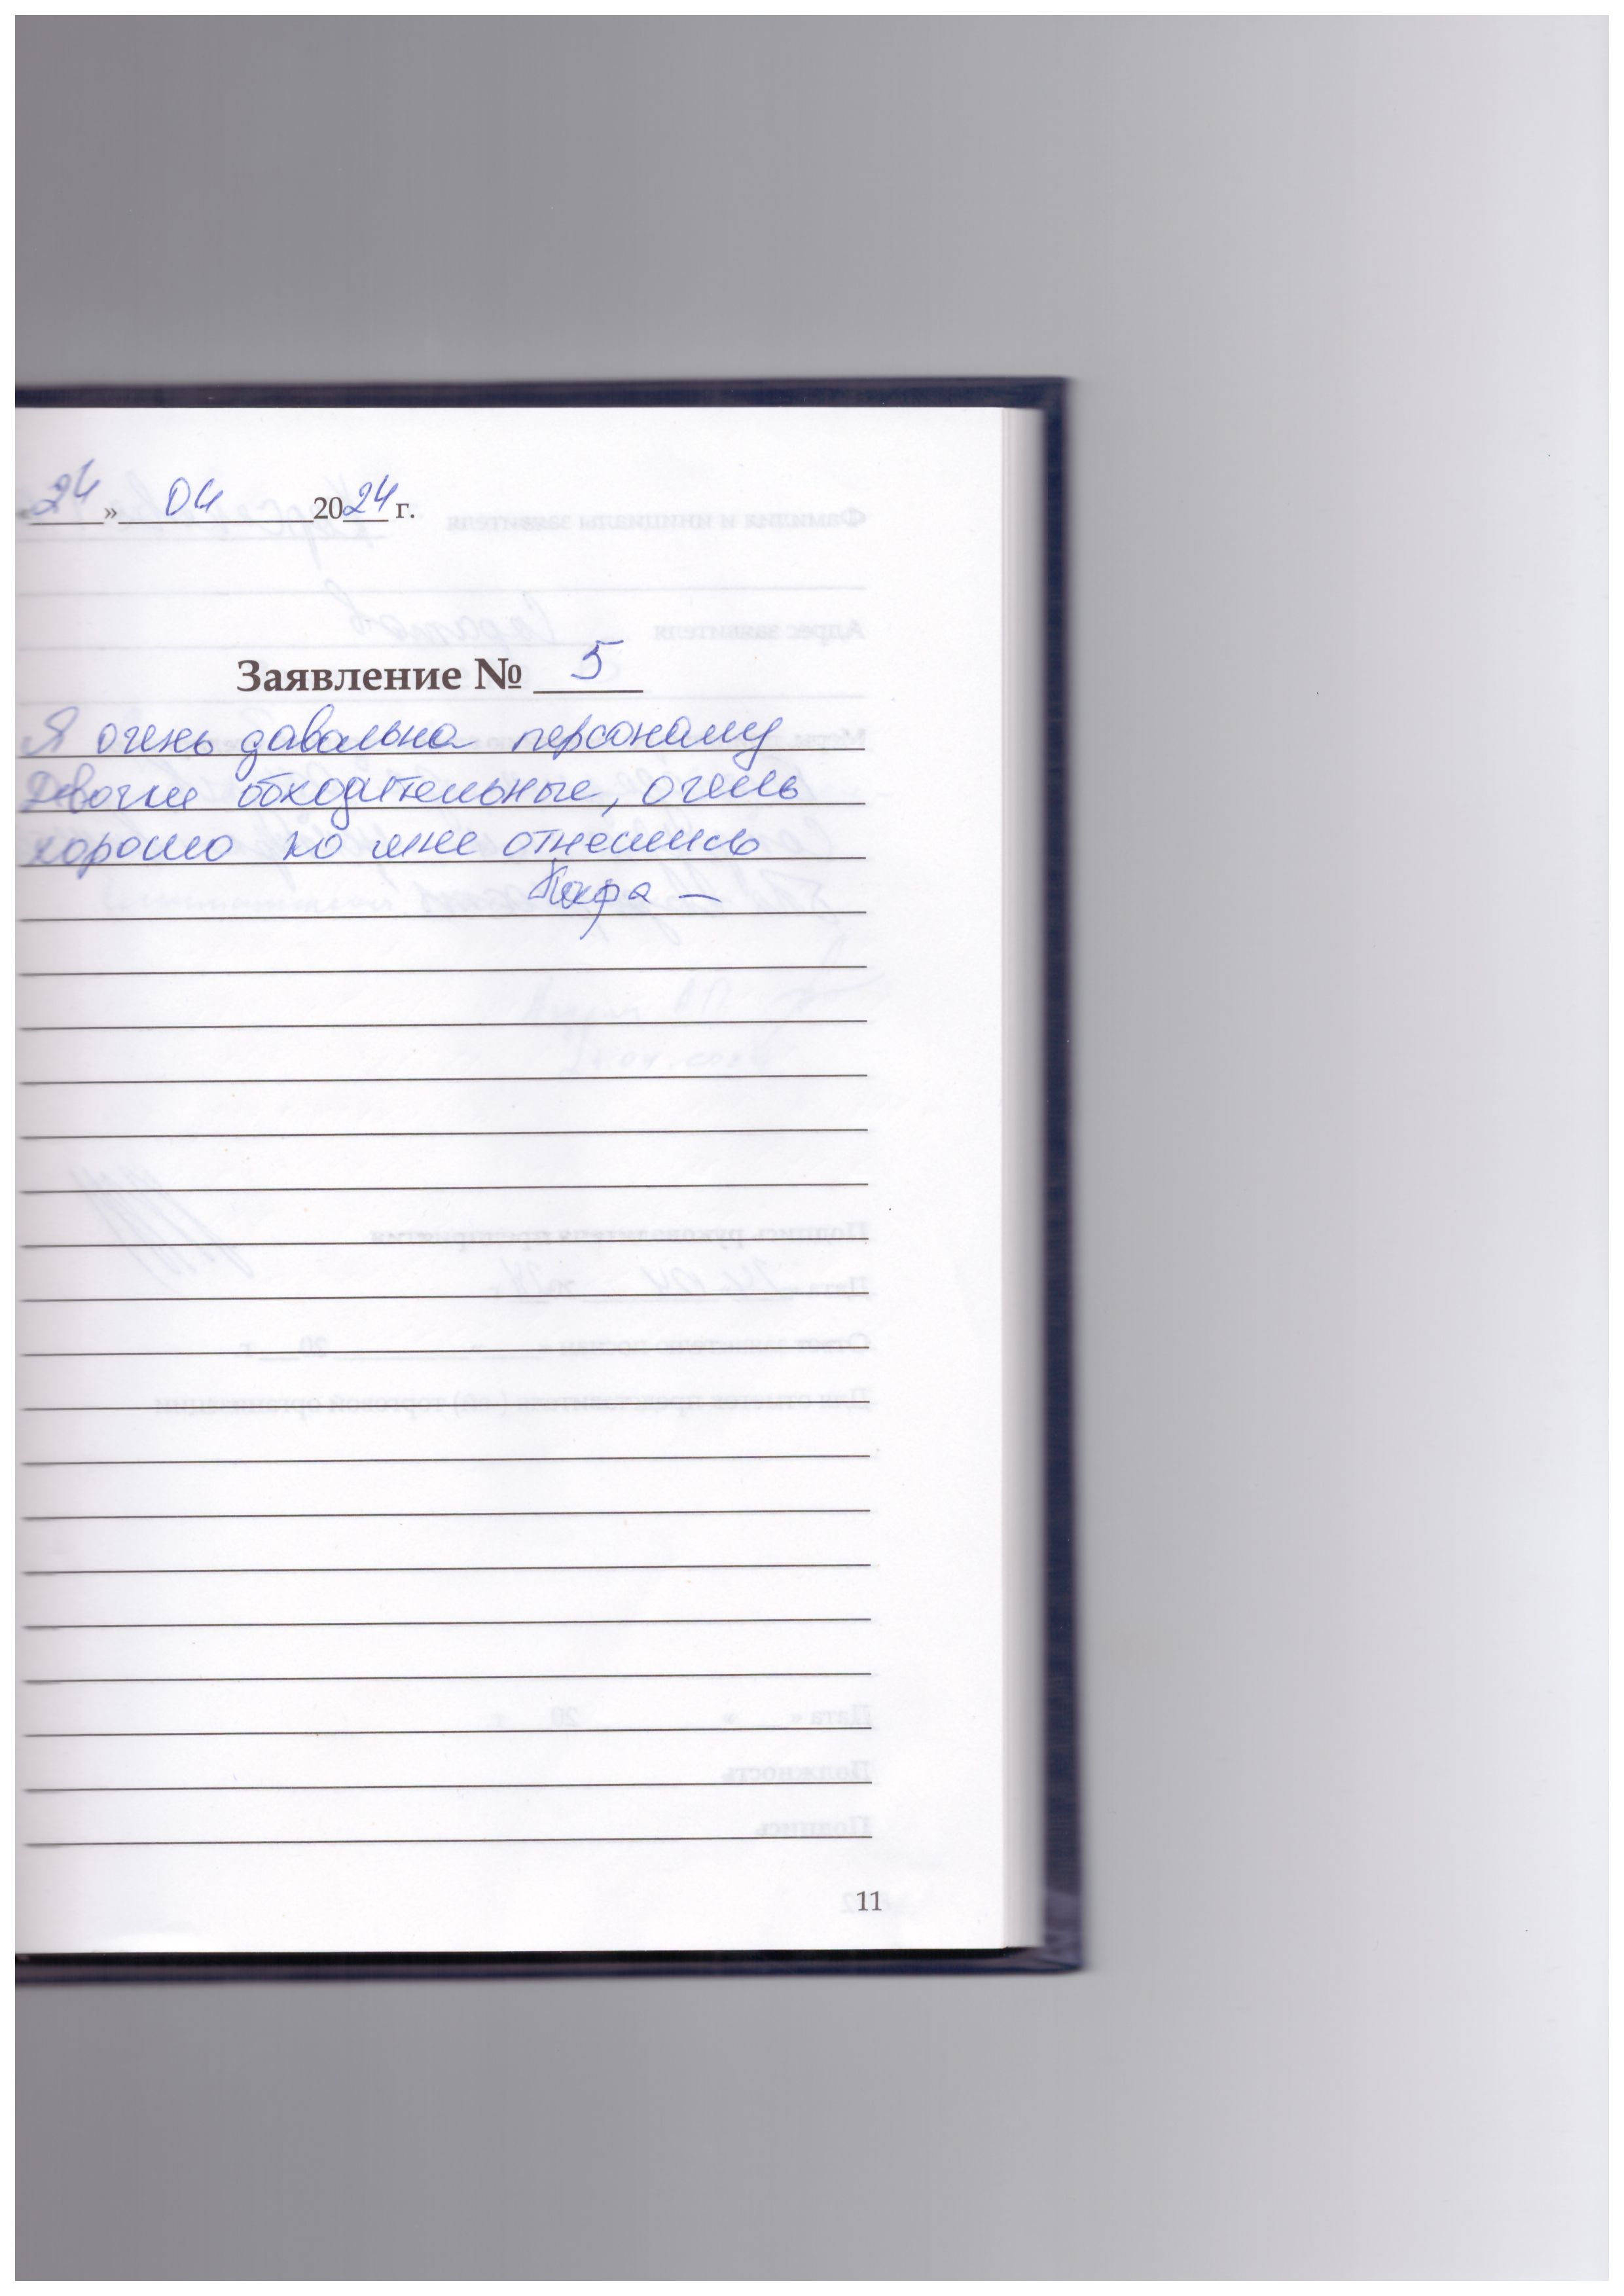 «24» 04 2024 г.
Заявление № 5
Я очень давольна персоналу
Девочки обходительные, очень
хорошо ко мне отнеслись
11